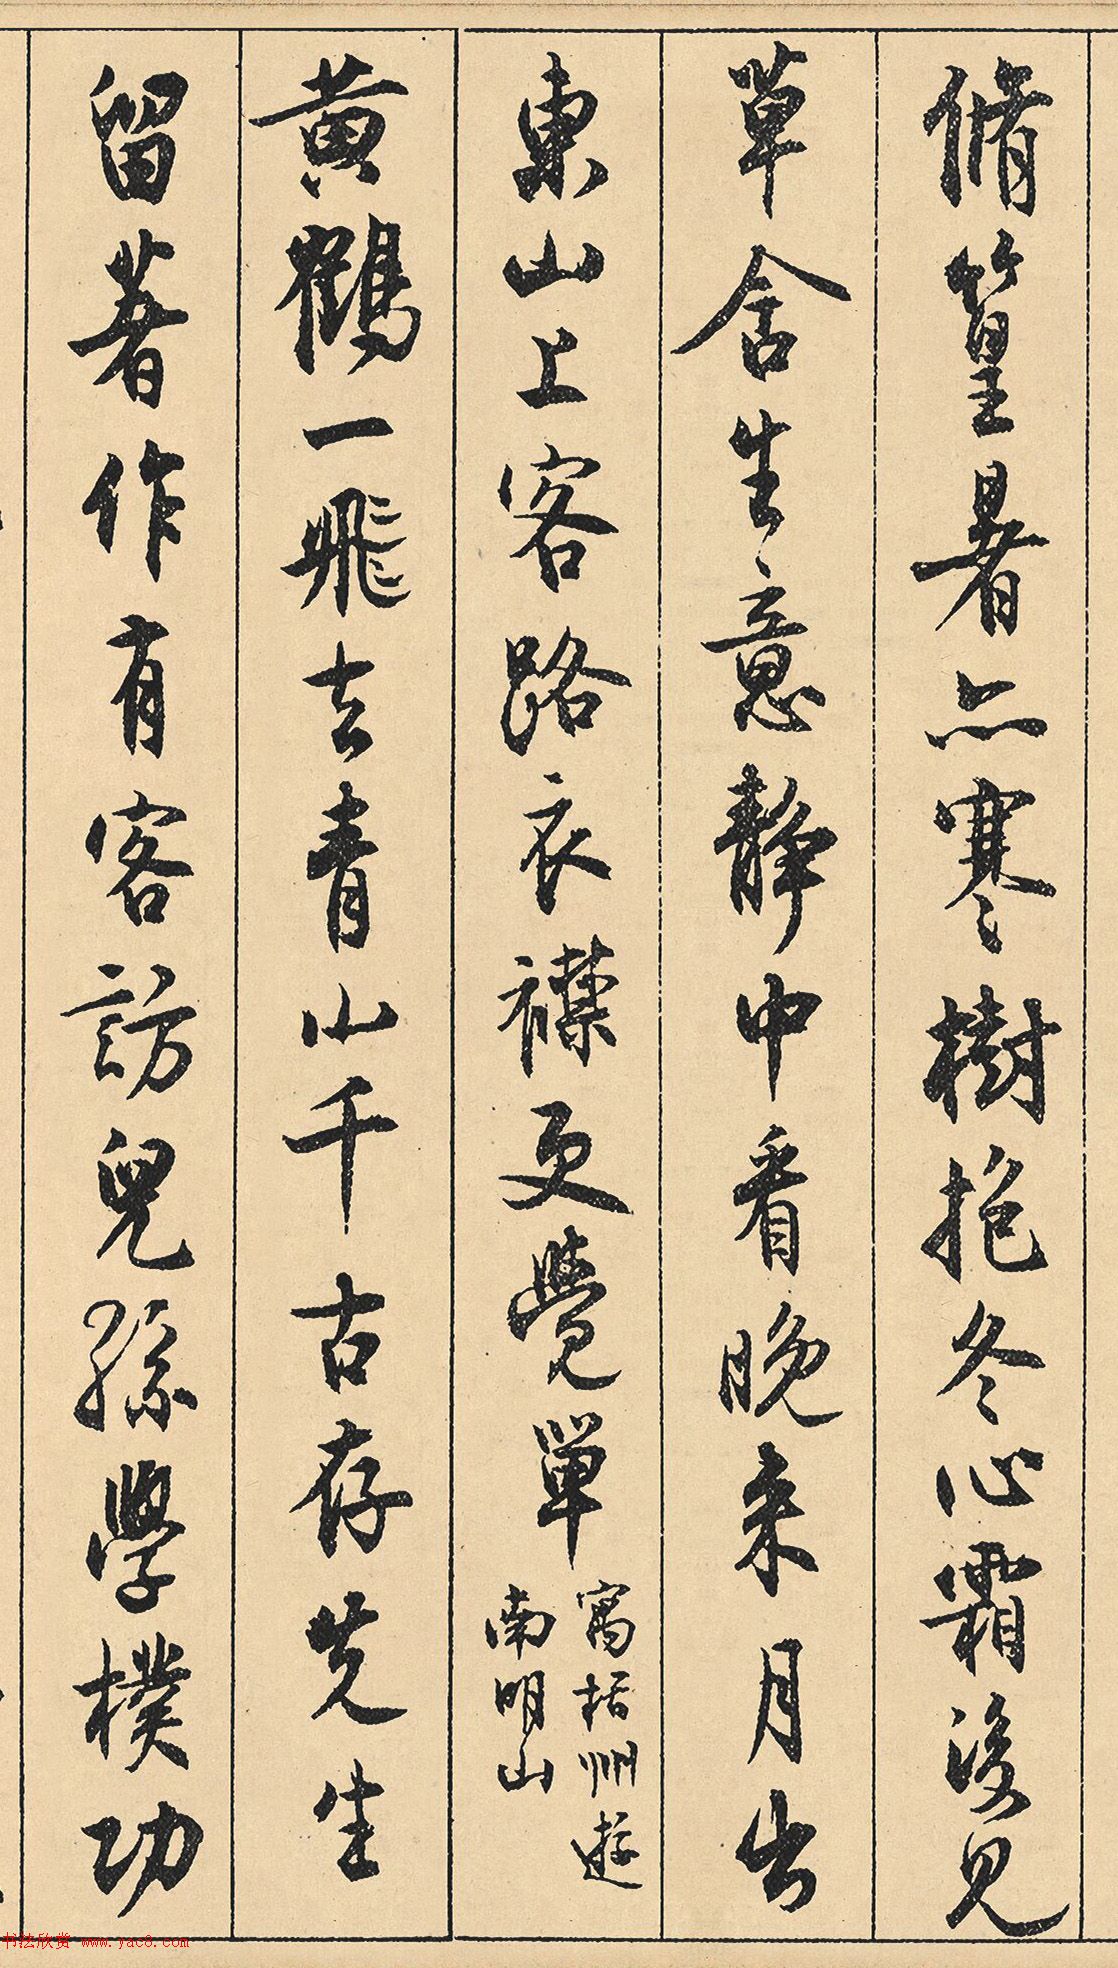 脩篁暑亦寒樹抱冬心霜後見
草舍生意靜中看晚来月出
東山上客路衣襟更覺單
寓栝州遊
南明山
黄鶴一飛去青山千古存先生
留著作有客訪兒孫學樸功
书法欣赏 www.yac8.com